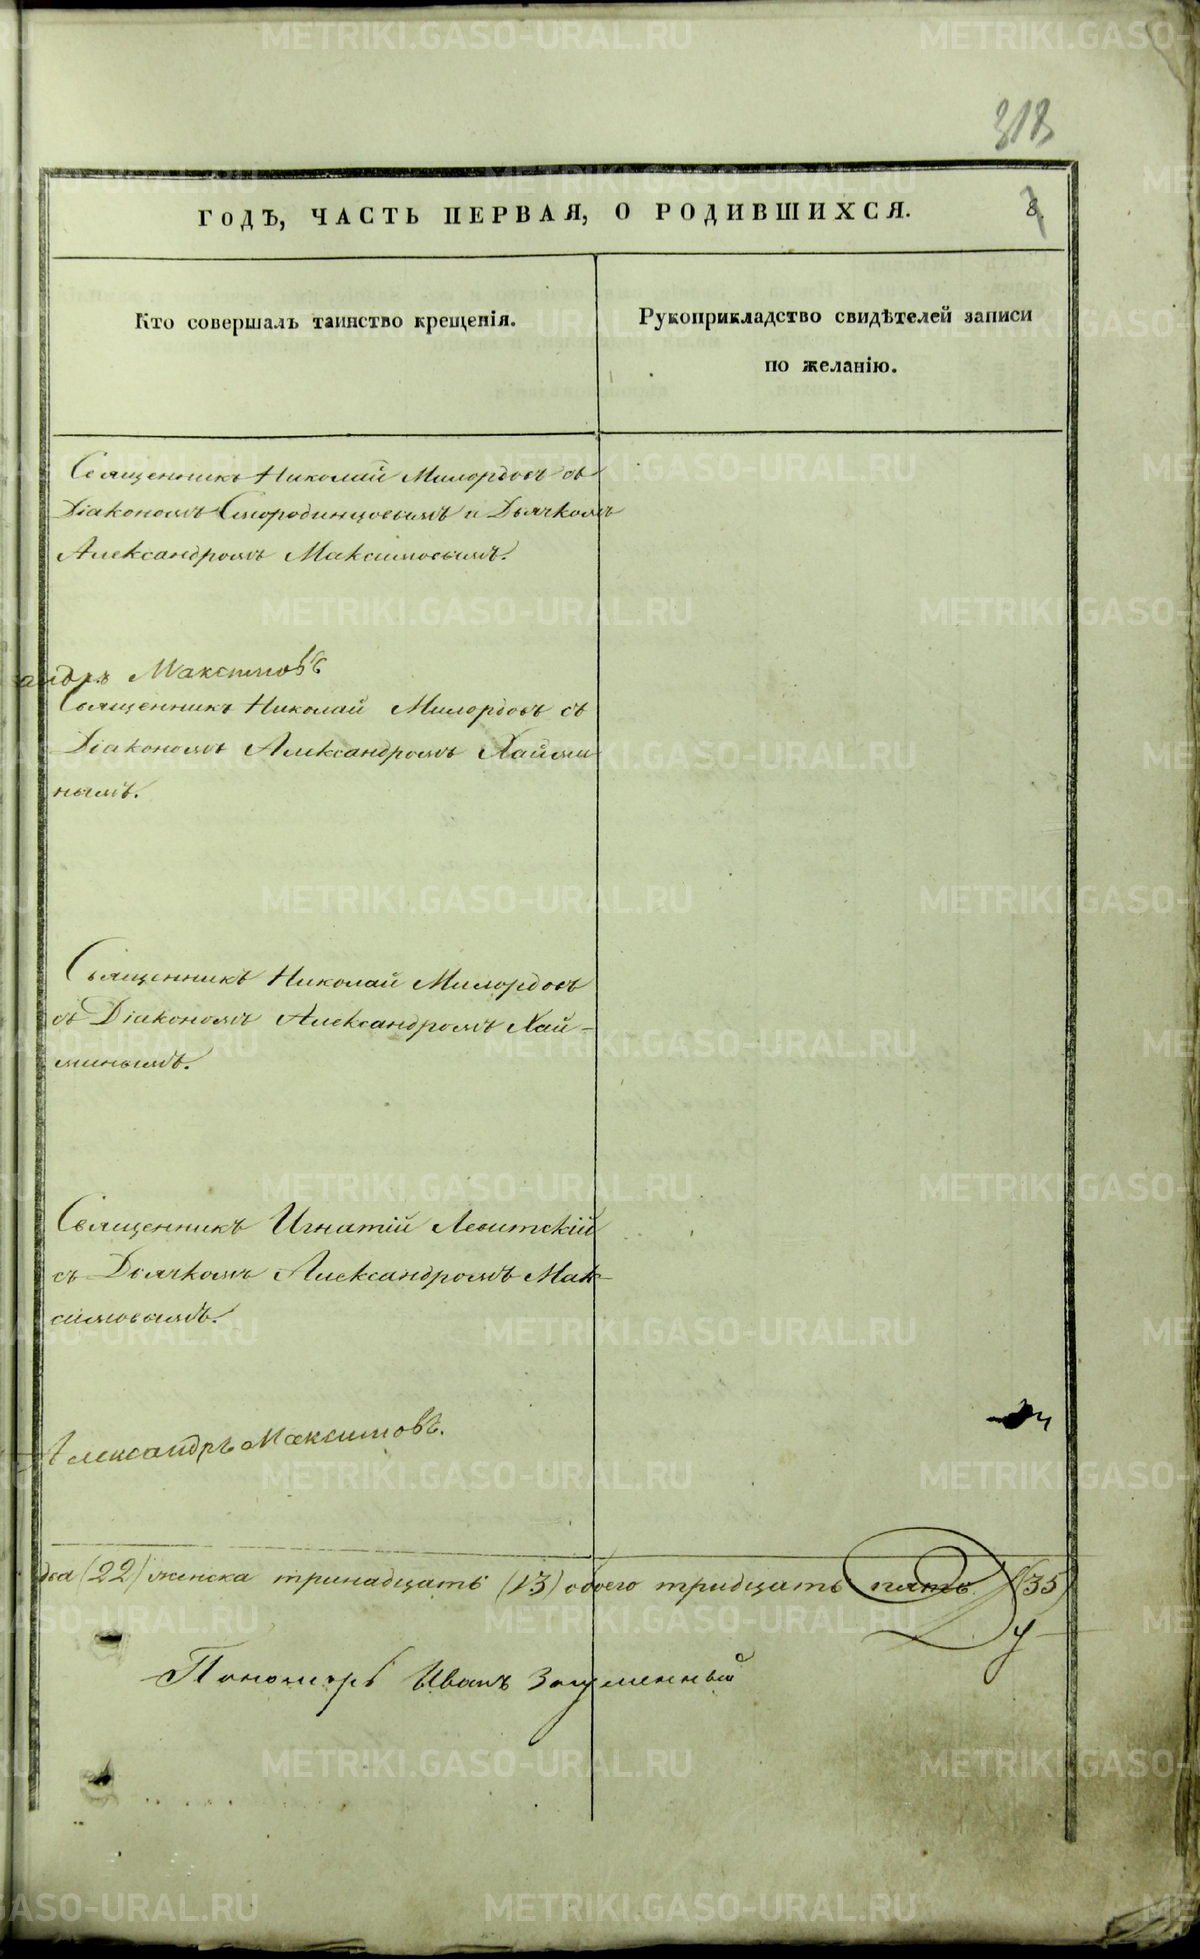 318
ГОДЪ, ЧАСТЬ ПЕРВАЯ, О РОДИВШИХСЯ.
Кто совершалъ таинство крещенія.
Рукоприкладство свидѣтелей записи
по желанію.
Священникъ Николай Милордовъ съ
Діакономъ Смородинцовымъ и Дьячкомъ
Александромъ Максимовымъ.
андръ Максимовъ
Священникъ Николай Милордовъ съ
Діакономъ Александромъ Хайми
нымъ.
Священникъ Николай Милордовъ
съ Діакономъ Александромъ Хай-
минымъ.
Священникъ Игнатій Левитскій
съ Дьячкомъ Александромъ Мак-
симовымъ.
Александръ Максимовъ.
два (22) женска тринадцать (13) обоего тридцать пять (35)
Пономарь Иванъ Загуменный
METRIKI.GASO-URAL.RU